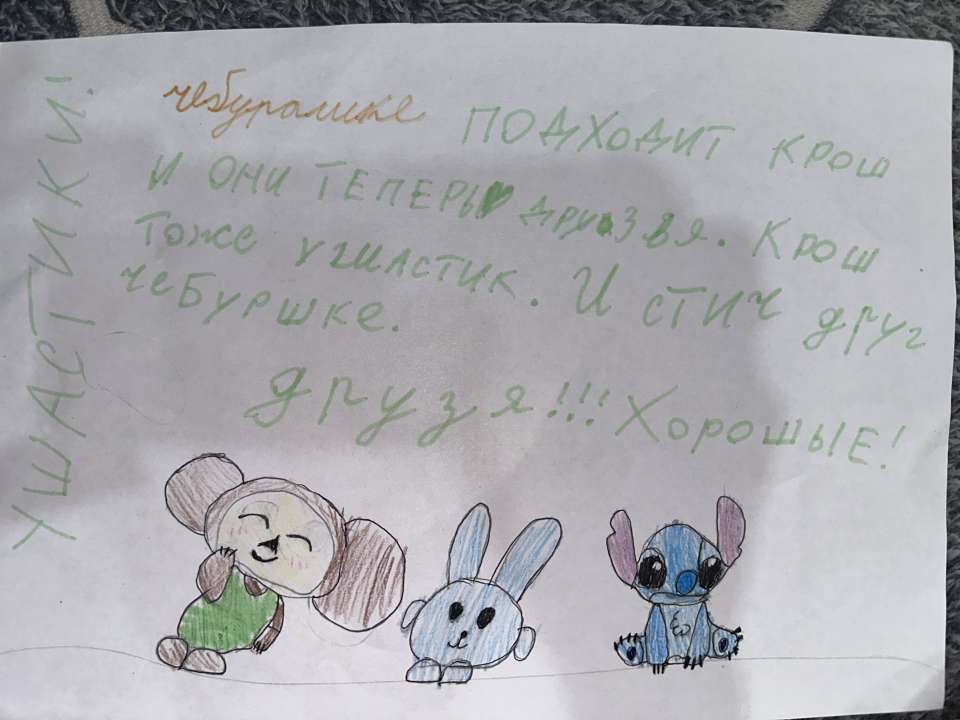 УШАСТИКИ!
чебурашке ПОДХОДИТ КРОШ
И ОНИ ТЕПЕРЬ друзвя. КРОШ
Тоже УшаСТИК. И СТИЧ друг
чебуршке.
друзя!!! Хорошые!